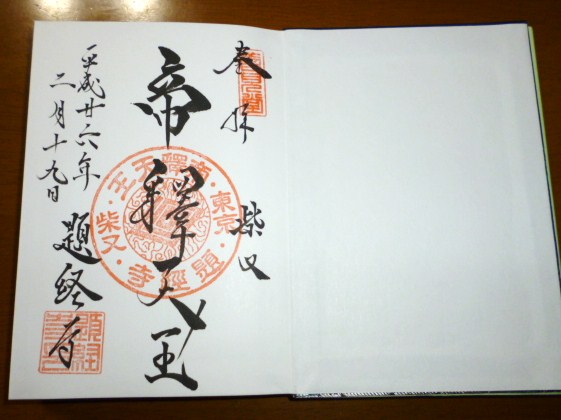 奉拝
柴又
帝釋天王
平成廿六年
二月十九日
題経寺
帝釋天王
東京
題經寺
柴又